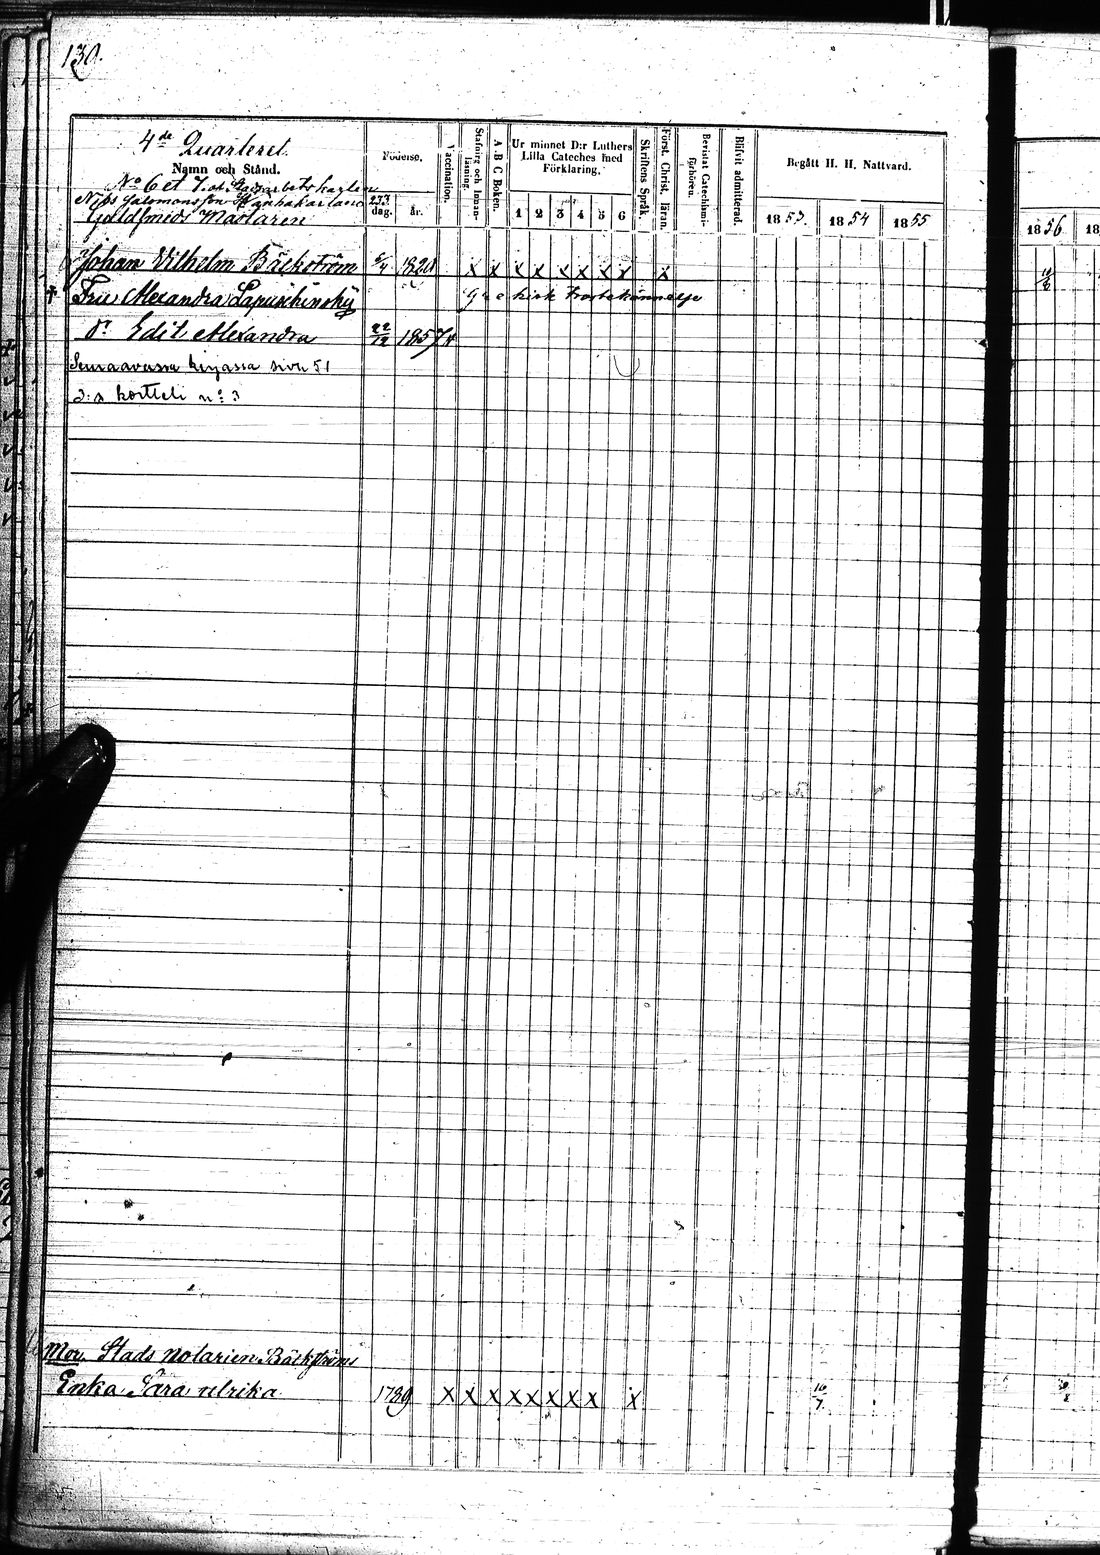 130.
4de Quarteret
Namn och Stånd.
No 6 et 7
Nils Salomonsson
Guldsmeds Mästaren
Födelse.
dag. år.
Vaccination.
Stafning och Innanläsning.
A B C Boken.
Ur minnet D:r Luthers Lilla Cateches med Förklaring.
1 2 3 4 5 6
Skriftens Språk.
Först. Christ. läran.
Bevistat Catechismiförhören.
Blifvit admitterad.
Begått H. H. Nattvard.
1853. 1854 1855
1856 18
Johan Vilhelm Bäckström x x x x x x x x x
Fru Alexandra Lapuschinsky Grekisk Trosbekännelse
dr Edit Alexandra 22/12 1857
Seuraavassa kirjassa sivu 51
2:a kortteli n:o 3
Mor. Stads Notarien Bäckströms
Enka Sara Ulrika 1789 x x x x x x x x x 16/7